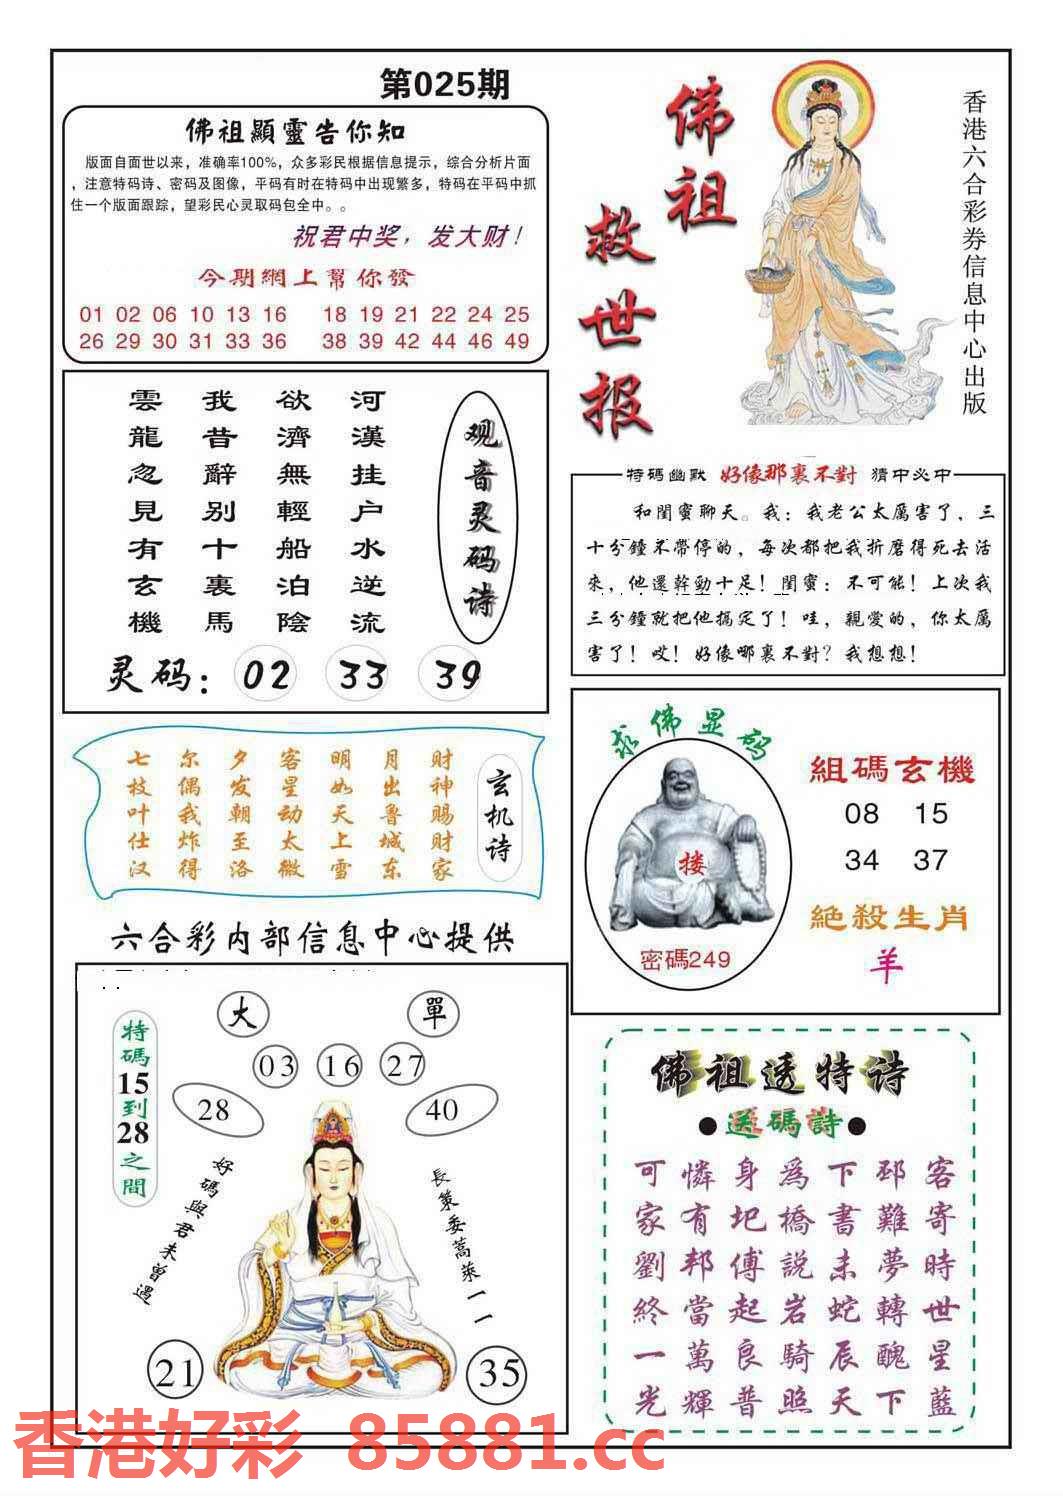 第025期
佛祖顯靈告你知
版面自面世以来，准确率100%，众多彩民根据信息提示，综合分析片面
，注意特码诗、密码及图像，平码有时在特码中出现繁多，特码在平码中抓
住一个版面跟踪，望彩民心灵取码包全中。。
祝君中奖，发大财！
今期網上幫你發
01 02 06 10 13 16 18 19 21 22 24 25
26 29 30 31 33 36 38 39 42 44 46 49
佛祖
救世报
香港六合彩券信息中心出版
观音灵码诗
河漢挂户水逆流
欲濟無輕船泊陰
我昔辭别十裏馬
雲龍忽見有玄機
灵码：02 33 39
特碼幽默 好像那裏不對 猜中必中
和閨蜜聊天。我：我老公太厲害了，三
十分鐘不帶停的，每次都把我折磨得死去活
來，他還幹勁十足！閨蜜：不可能！上次我
三分鐘就把他搞定了！哇，親愛的，你太厲
害了！哎！好像哪裏不對？我想想！
玄机诗
财神赐财家
月出鲁城东
明如天上雪
客星动太微
夕发朝至洛
尔偶我炸得
七枝叶仕汉
求佛显码
搂
密碼249
組碼玄機
08 15
34 37
絕殺生肖
羊
六合彩内部信息中心提供
大
單
03 16 27
28
40
特碼15到28之間
好碼與君未曾遇
長策委蒿萊一一
21
35
佛祖透特诗
●送碼詩●
客寄時世星藍
邳難夢轉醜下
下書未蛇辰天
爲橋説岩騎照
身圯傅起良普
憐有邦當萬輝
可家劉終一光
香港好彩 85881.cc